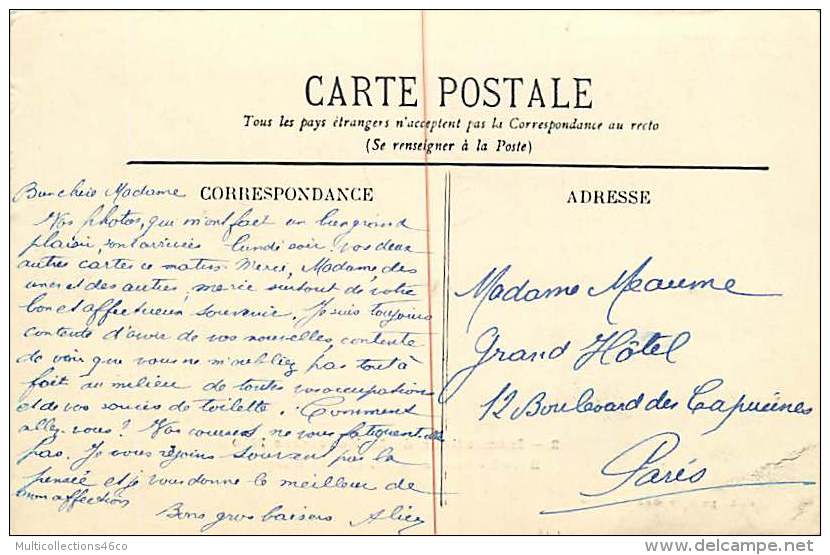 CARTE POSTALE
Tous les pays étrangers n'acceptent pas la Correspondance au recto
(Se renseigner à la Poste)
CORRESPONDANCE
Bien chère Madame
Vos photos, qui m'ont fait un bien grand
plaisir, sont arrivées lundi soir. vos deux
autres cartes ce matin. Merci, Madame, des
unes et des autres, merci surtout de votre
bon et affectueux souvenir. Je suis toujours
contente d'avoir de vos nouvelles, contente
de voir que vous ne m'oubliez pas tout à
fait au milieu de toutes vos occupations
et de vos soucis de toilette. Comment
allez-vous? Vos courses ne vous fatiguent-elles
pas. Je vous rejoins souvent par la
pensée et je vous donne le meilleur de
mon affection
Bons gros baisers Alice
ADRESSE
Madame Meaume
Grand Hôtel
12 Boulevard des Capucines
Paris
Multicollections46co
delcampe.net